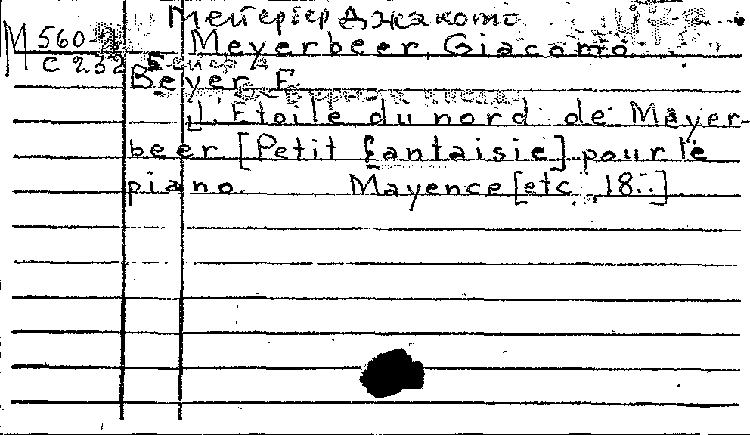 Мейербер Джакомо
M 560
Meyerbeer, Giacomo.
C 252
Beyer F.
L'Etoile du nord de Mayer-
beer [Petit fantaisie] pour le
piano. Mayence [etc., 18..]